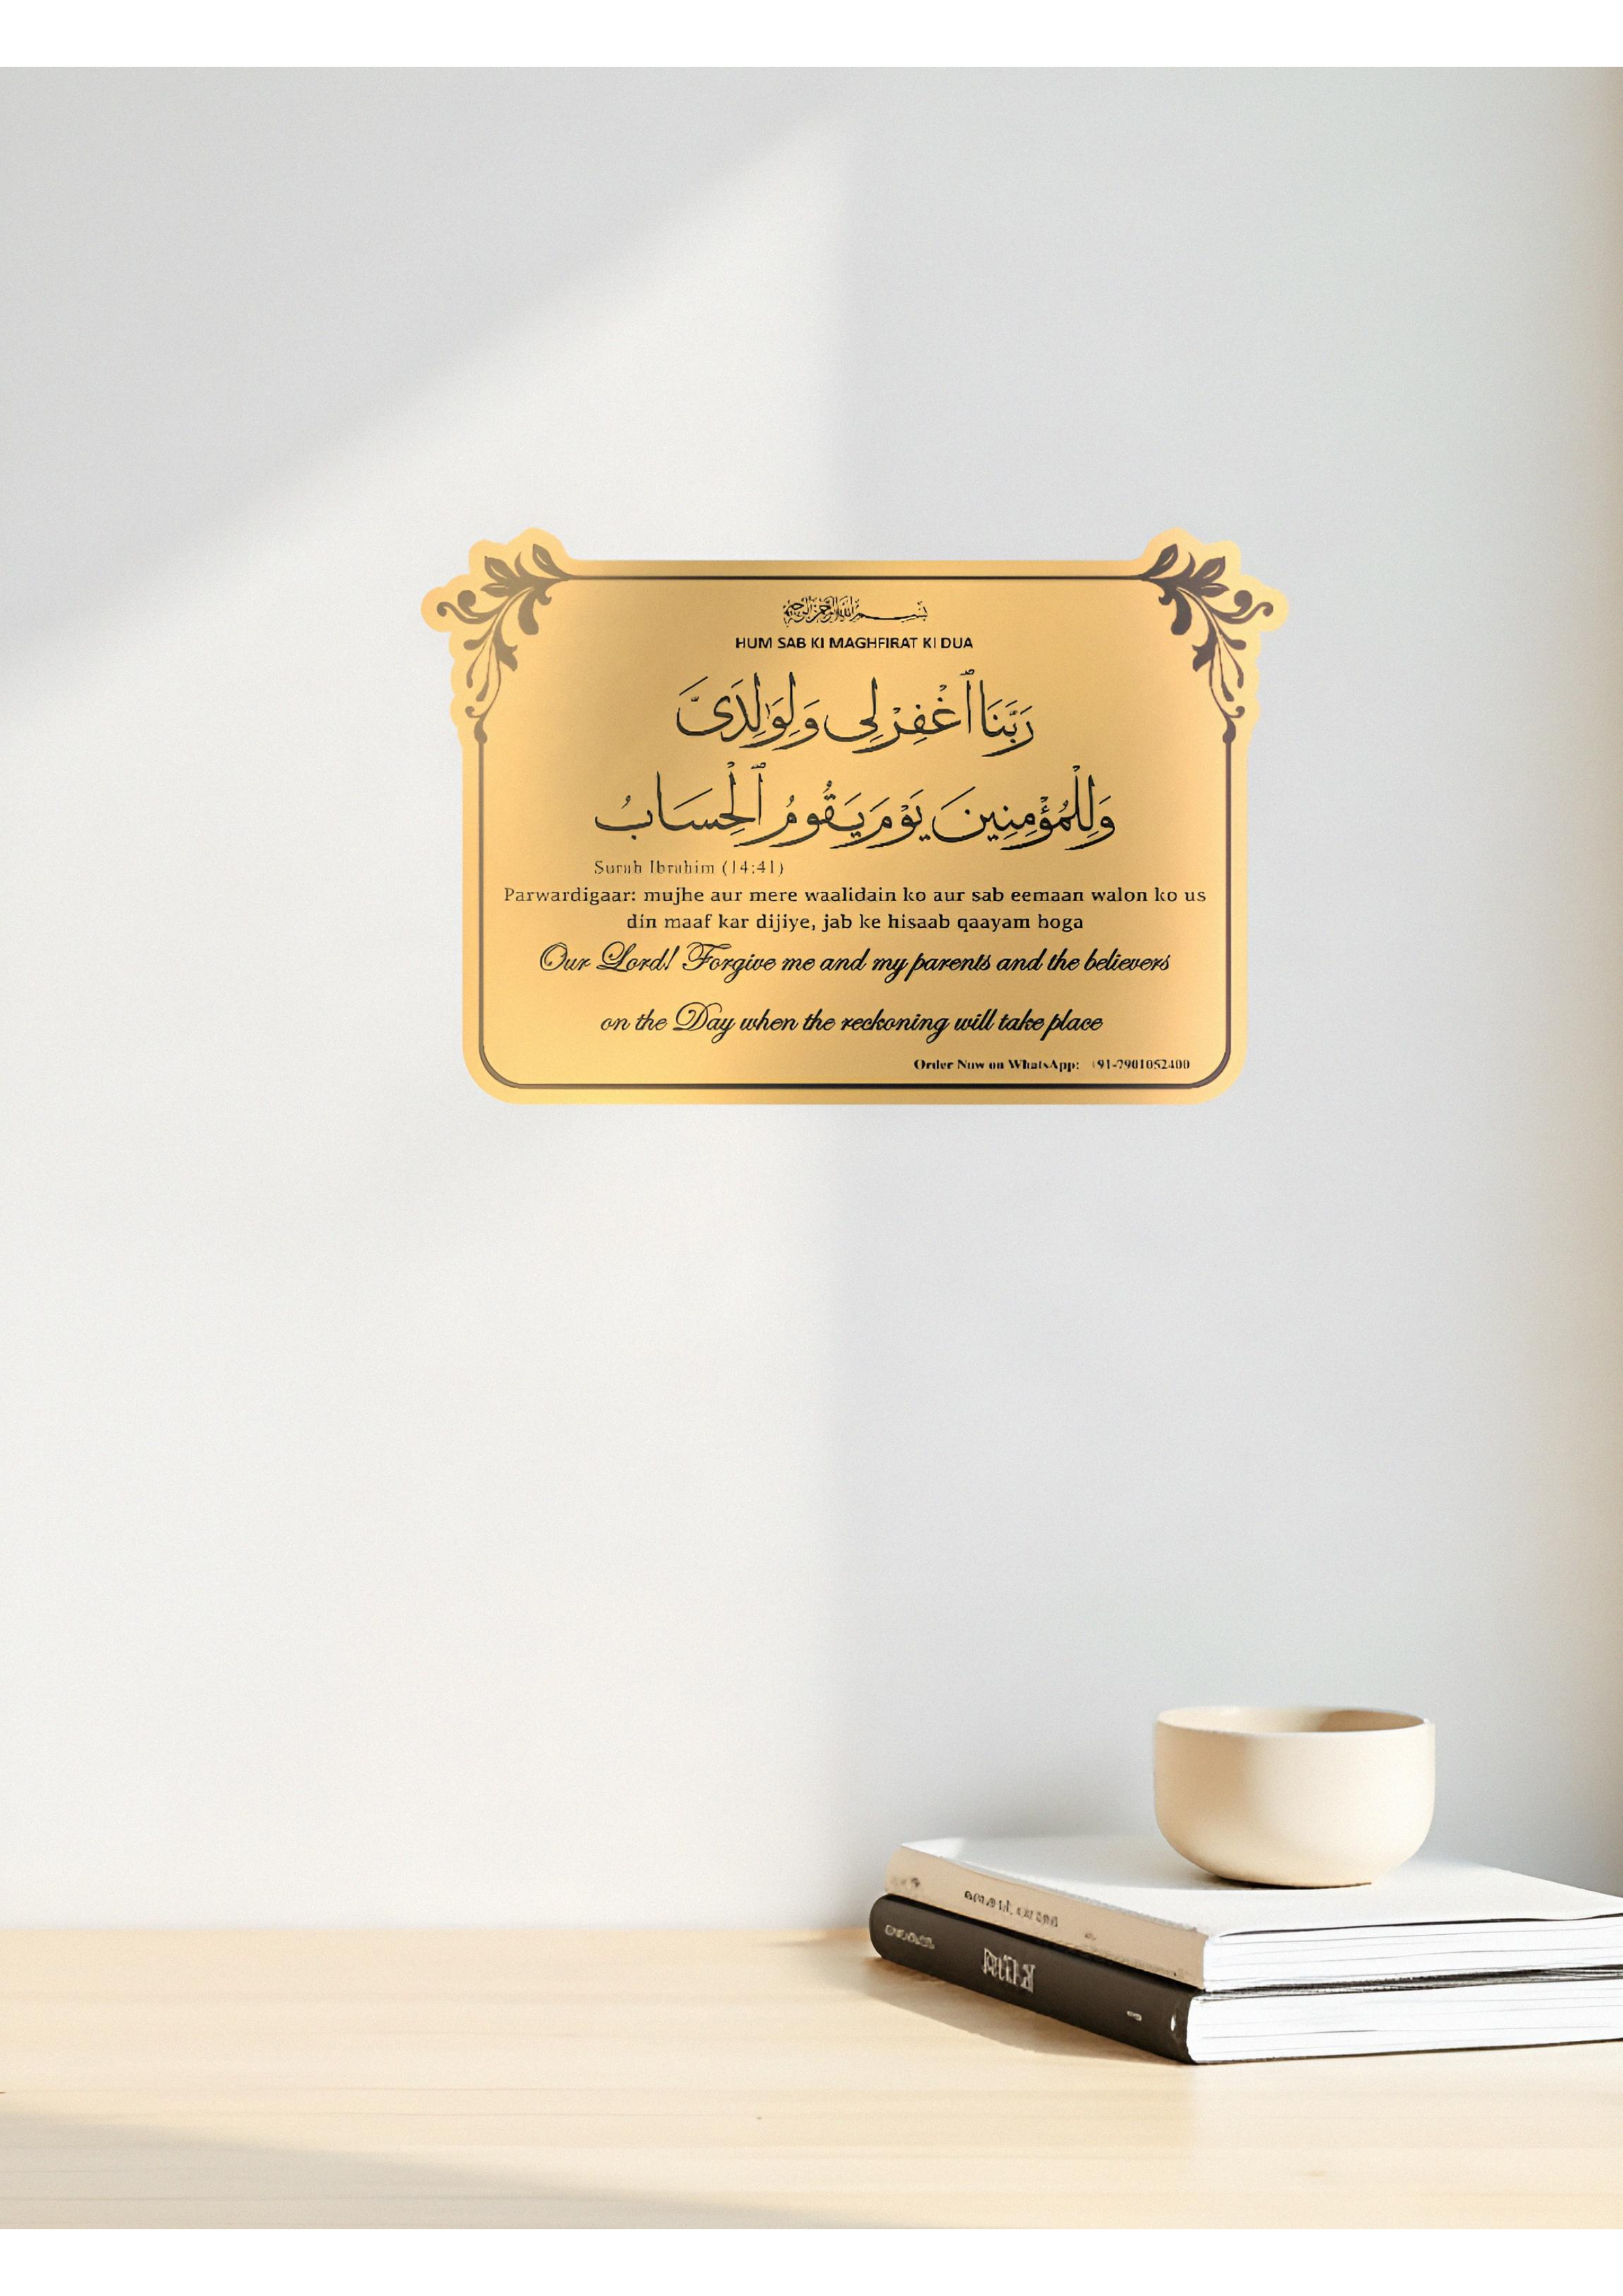 بسم الله الرحمن الرحيم
HUM SAB KI MAGHFIRAT KI DUA
رَبَّنَا ٱغْفِرْ لِى وَلِوَٰلِدَىَّ
وَلِلْمُؤْمِنِينَ يَوْمَ يَقُومُ ٱلْحِسَابُ
Surah Ibrahim (14:41)
Parwardigaar: mujhe aur mere waalidain ko aur sab eemaan walon ko us
din maaf kar dijiye, jab ke hisaab qaayam hoga
Our Lord! Forgive me and my parents and the believers
on the Day when the reckoning will take place
Order Now on WhatsApp: +91-7901052400